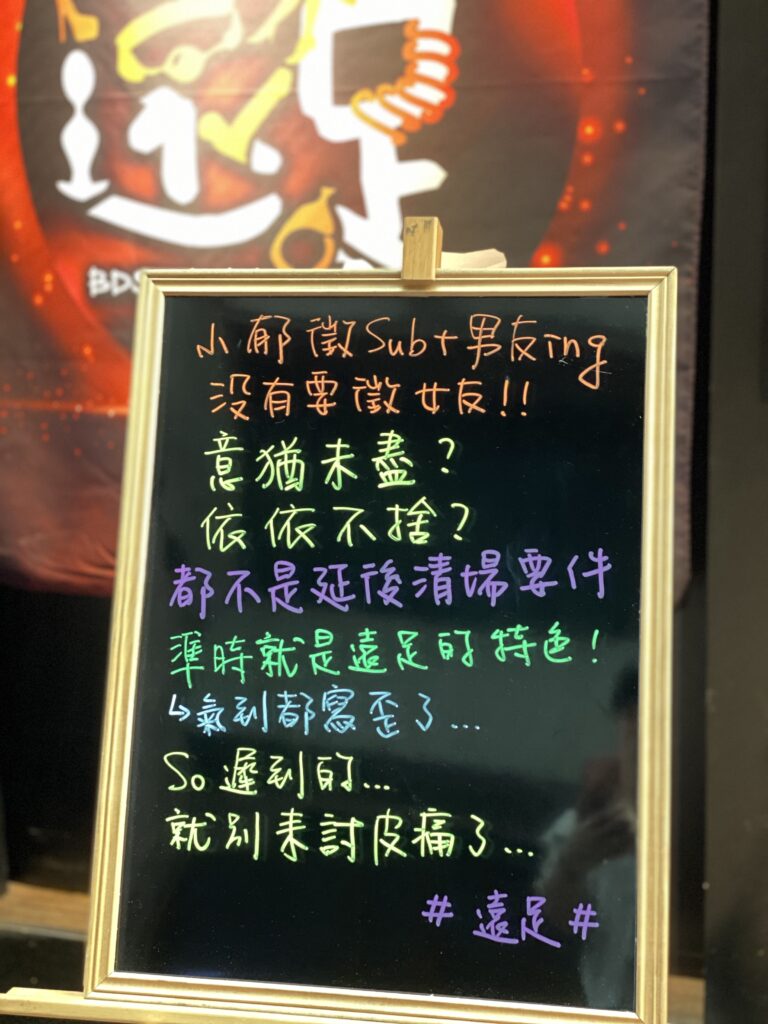 遠足
BDS
小郁徵Sub+男友ing
沒有要徵女友!!
意猶未盡?
依依不捨?
都不是延後清場要件
準時就是遠足的特色!
↳氣到都寫歪了...
So遲到的...
就別來討皮痛了...
#遠足#